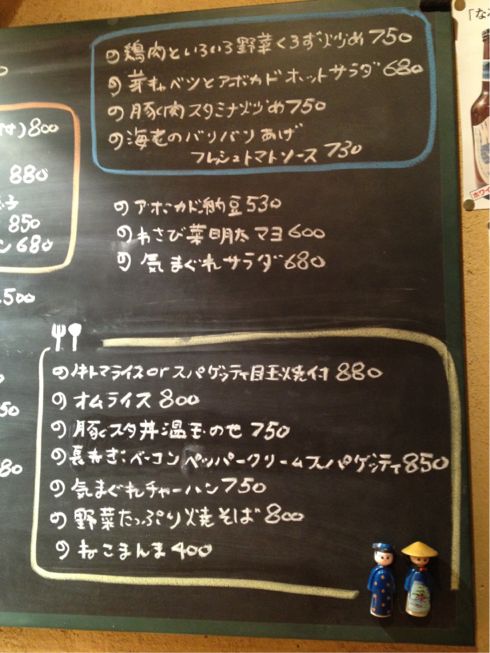 の 鶏肉といろいろ野菜くろず炒め 750
の 芽キャベツとアボカドホットサラダ 680
の 豚肉スタミナ炒め 750
の 海老のバリバリあげ
フレッシュトマトソース 730
す) 800
880
850
ン 680
の アボカド納豆 530
の わさび菜明太マヨ 600
の 気まぐれサラダ 680
500
の 牛トマライス or スパゲッティ目玉焼付 880
の オムライス 800
の 豚スタ丼温玉のせ 750
の 長ねぎ:ベーコンペッパークリームスパゲッティ 850
の 気まぐれチャーハン 750
の 野菜たっぷり焼そば 800
の ねこまんま 400
50
80